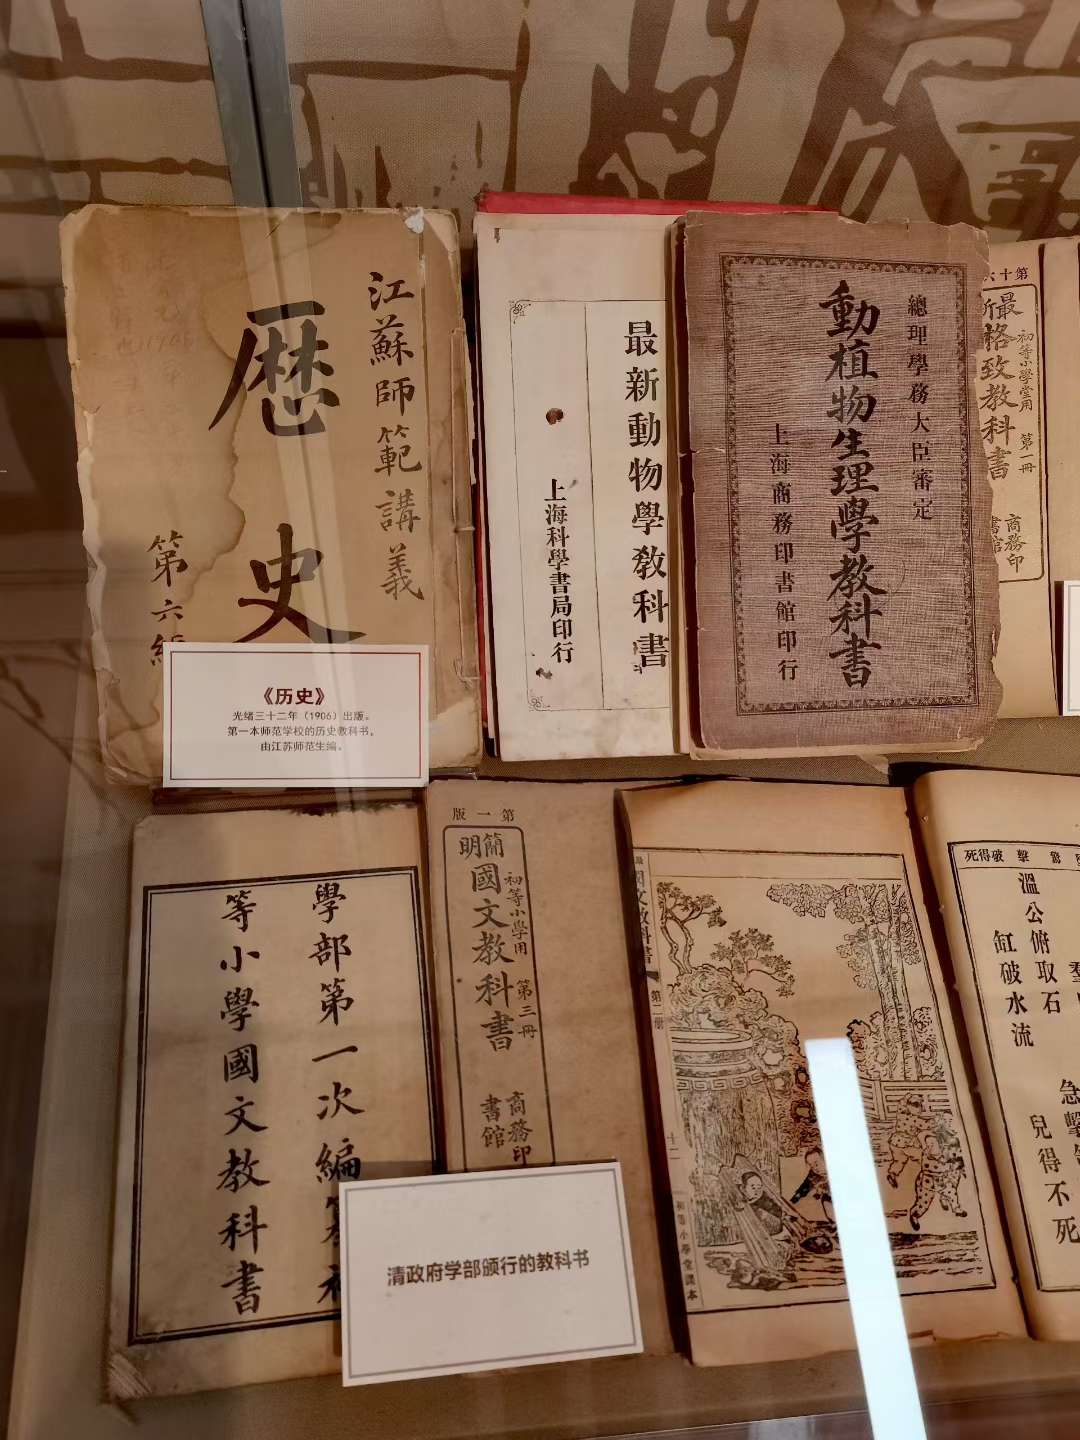 江蘇師範講義
歷史
第六編
《历史》
光绪三十二年（1906）出版。
第一本师范学校的历史教科书，
由江苏师范生编。
最新動物學教科書
上海科學書局印行
總理學務大臣審定
動植物生理學教科書
上海商務印書館印行
第十六
最新
格致教科書
初等小學堂用 第一冊
商務印
書館
學部第一次編纂初
等小學國文教科書
第一版
簡明
國文教科書
初等小學用 第三冊
商務印
書館
清政府学部颁行的教科书
國文教科書 第二冊
十二
初等小學堂課本
擊破得死
溫公俯取石
缸破水流
急擊
兒得不死